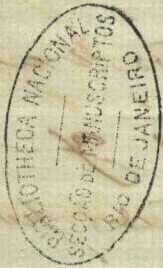 BIBLIOTHECA NACIONAL
SECCÃO DE MANUSCRIPTOS
RIO DE JANEIRO